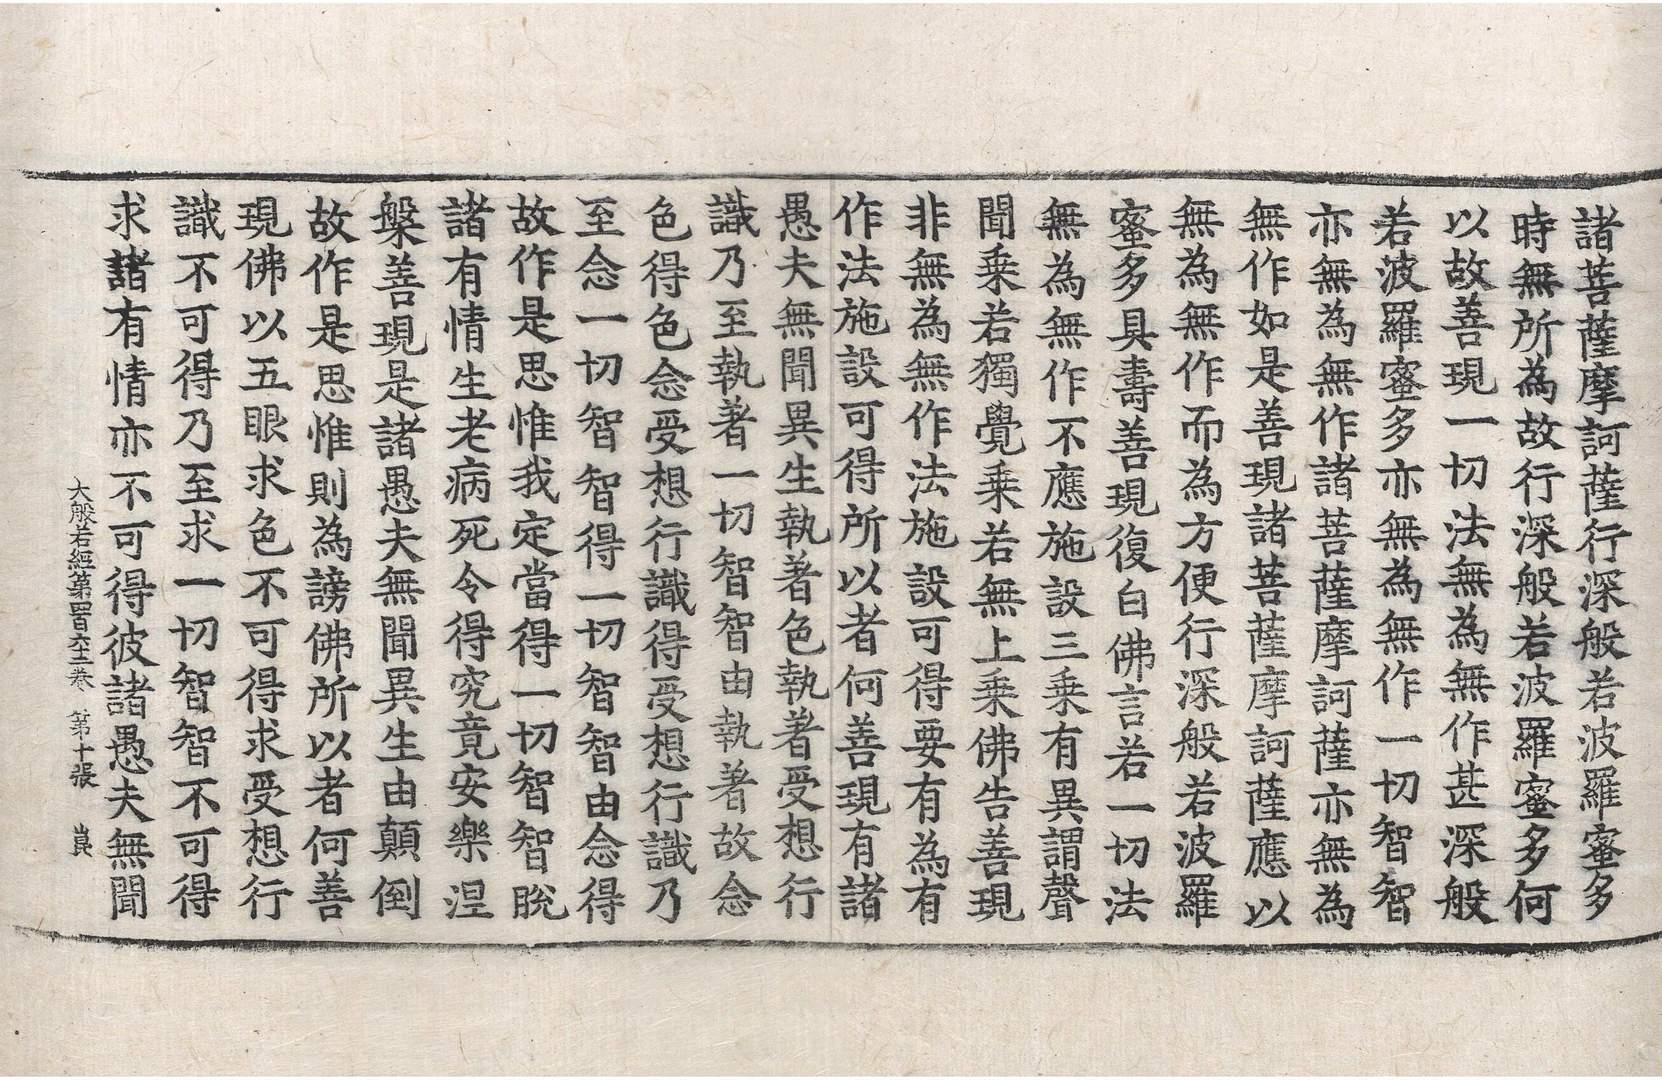 諸菩薩摩訶薩行深般若波羅蜜多
時無所為故行深般若波羅蜜多何
以故善現一切法無為無作甚深般
若波羅蜜多亦無為無作一切智智
亦無為無作諸菩薩摩訶薩亦無為
無作如是善現諸菩薩摩訶薩應以
無為無作而為方便行深般若波羅
蜜多具壽善現復白佛言若一切法
無為無作不應施設三乘有異謂聲
聞乘若獨覺乘若無上乘佛告善現
非無為無作法施設可得要有為有
作法施設可得所以者何善現有諸
愚夫無聞異生執著色執著受想行
識乃至執著一切智智由執著故念
色得色念受想行識得受想行識乃
至念一切智智得一切智智由念得
故作是思惟我定當得一切智智脫
諸有情生老病死令得究竟安樂涅
槃善現是諸愚夫無聞異生由顛倒
故作是思惟則為謗佛所以者何善
現佛以五眼求色不可得求受想行
識不可得乃至求一切智智不可得
求諸有情亦不可得彼諸愚夫無聞
大般若經第四百六十二卷 第十張 崑